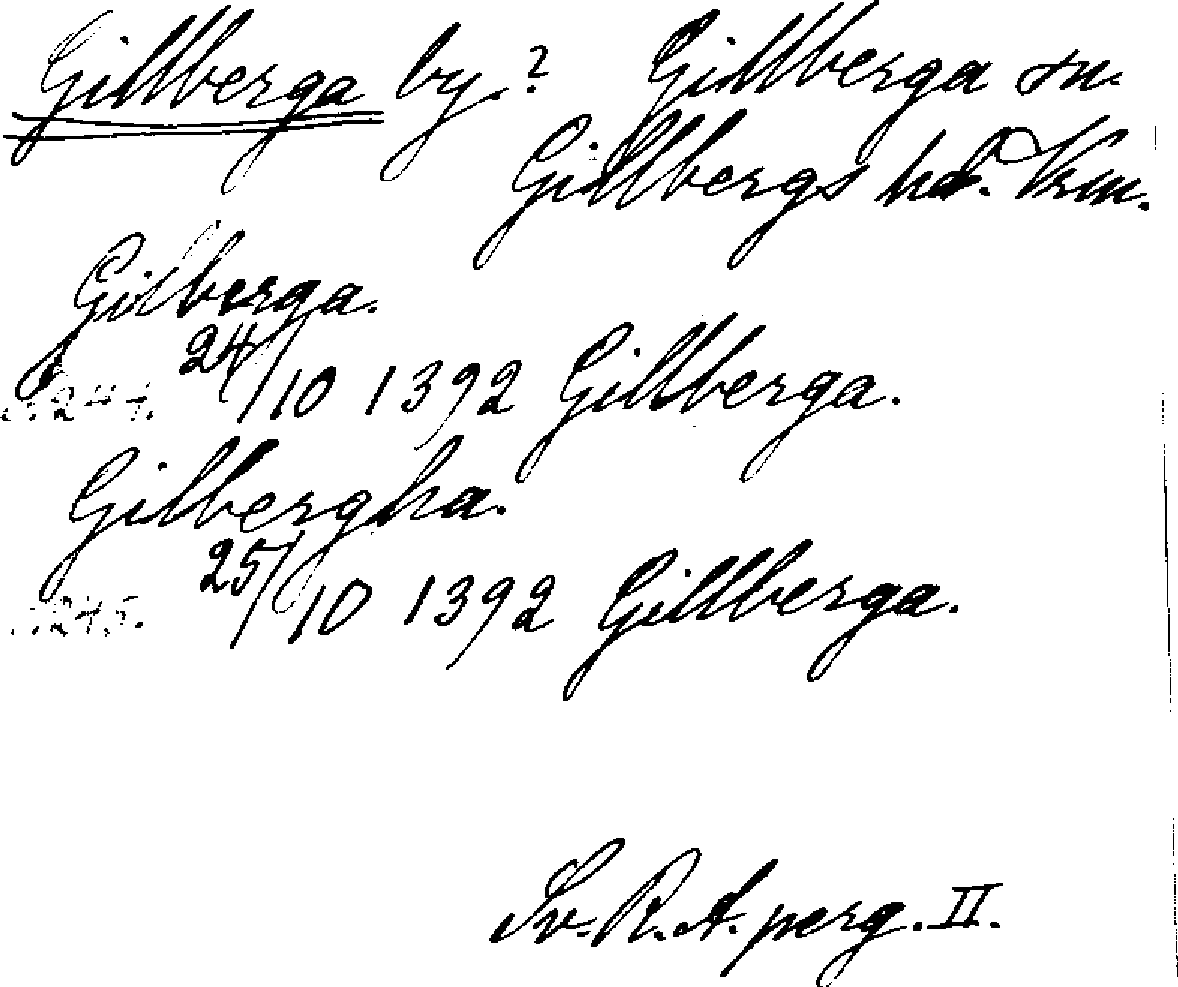 Gillberga by.? Gillberga sn.
Gillbergs hd. Vrm.
Gilberga.
s. 244. 24/10 1392 Gillberga.
Gilbergha.
s. 245. 25/10 1392 Gillberga.
Sv. R. A. perg. II.